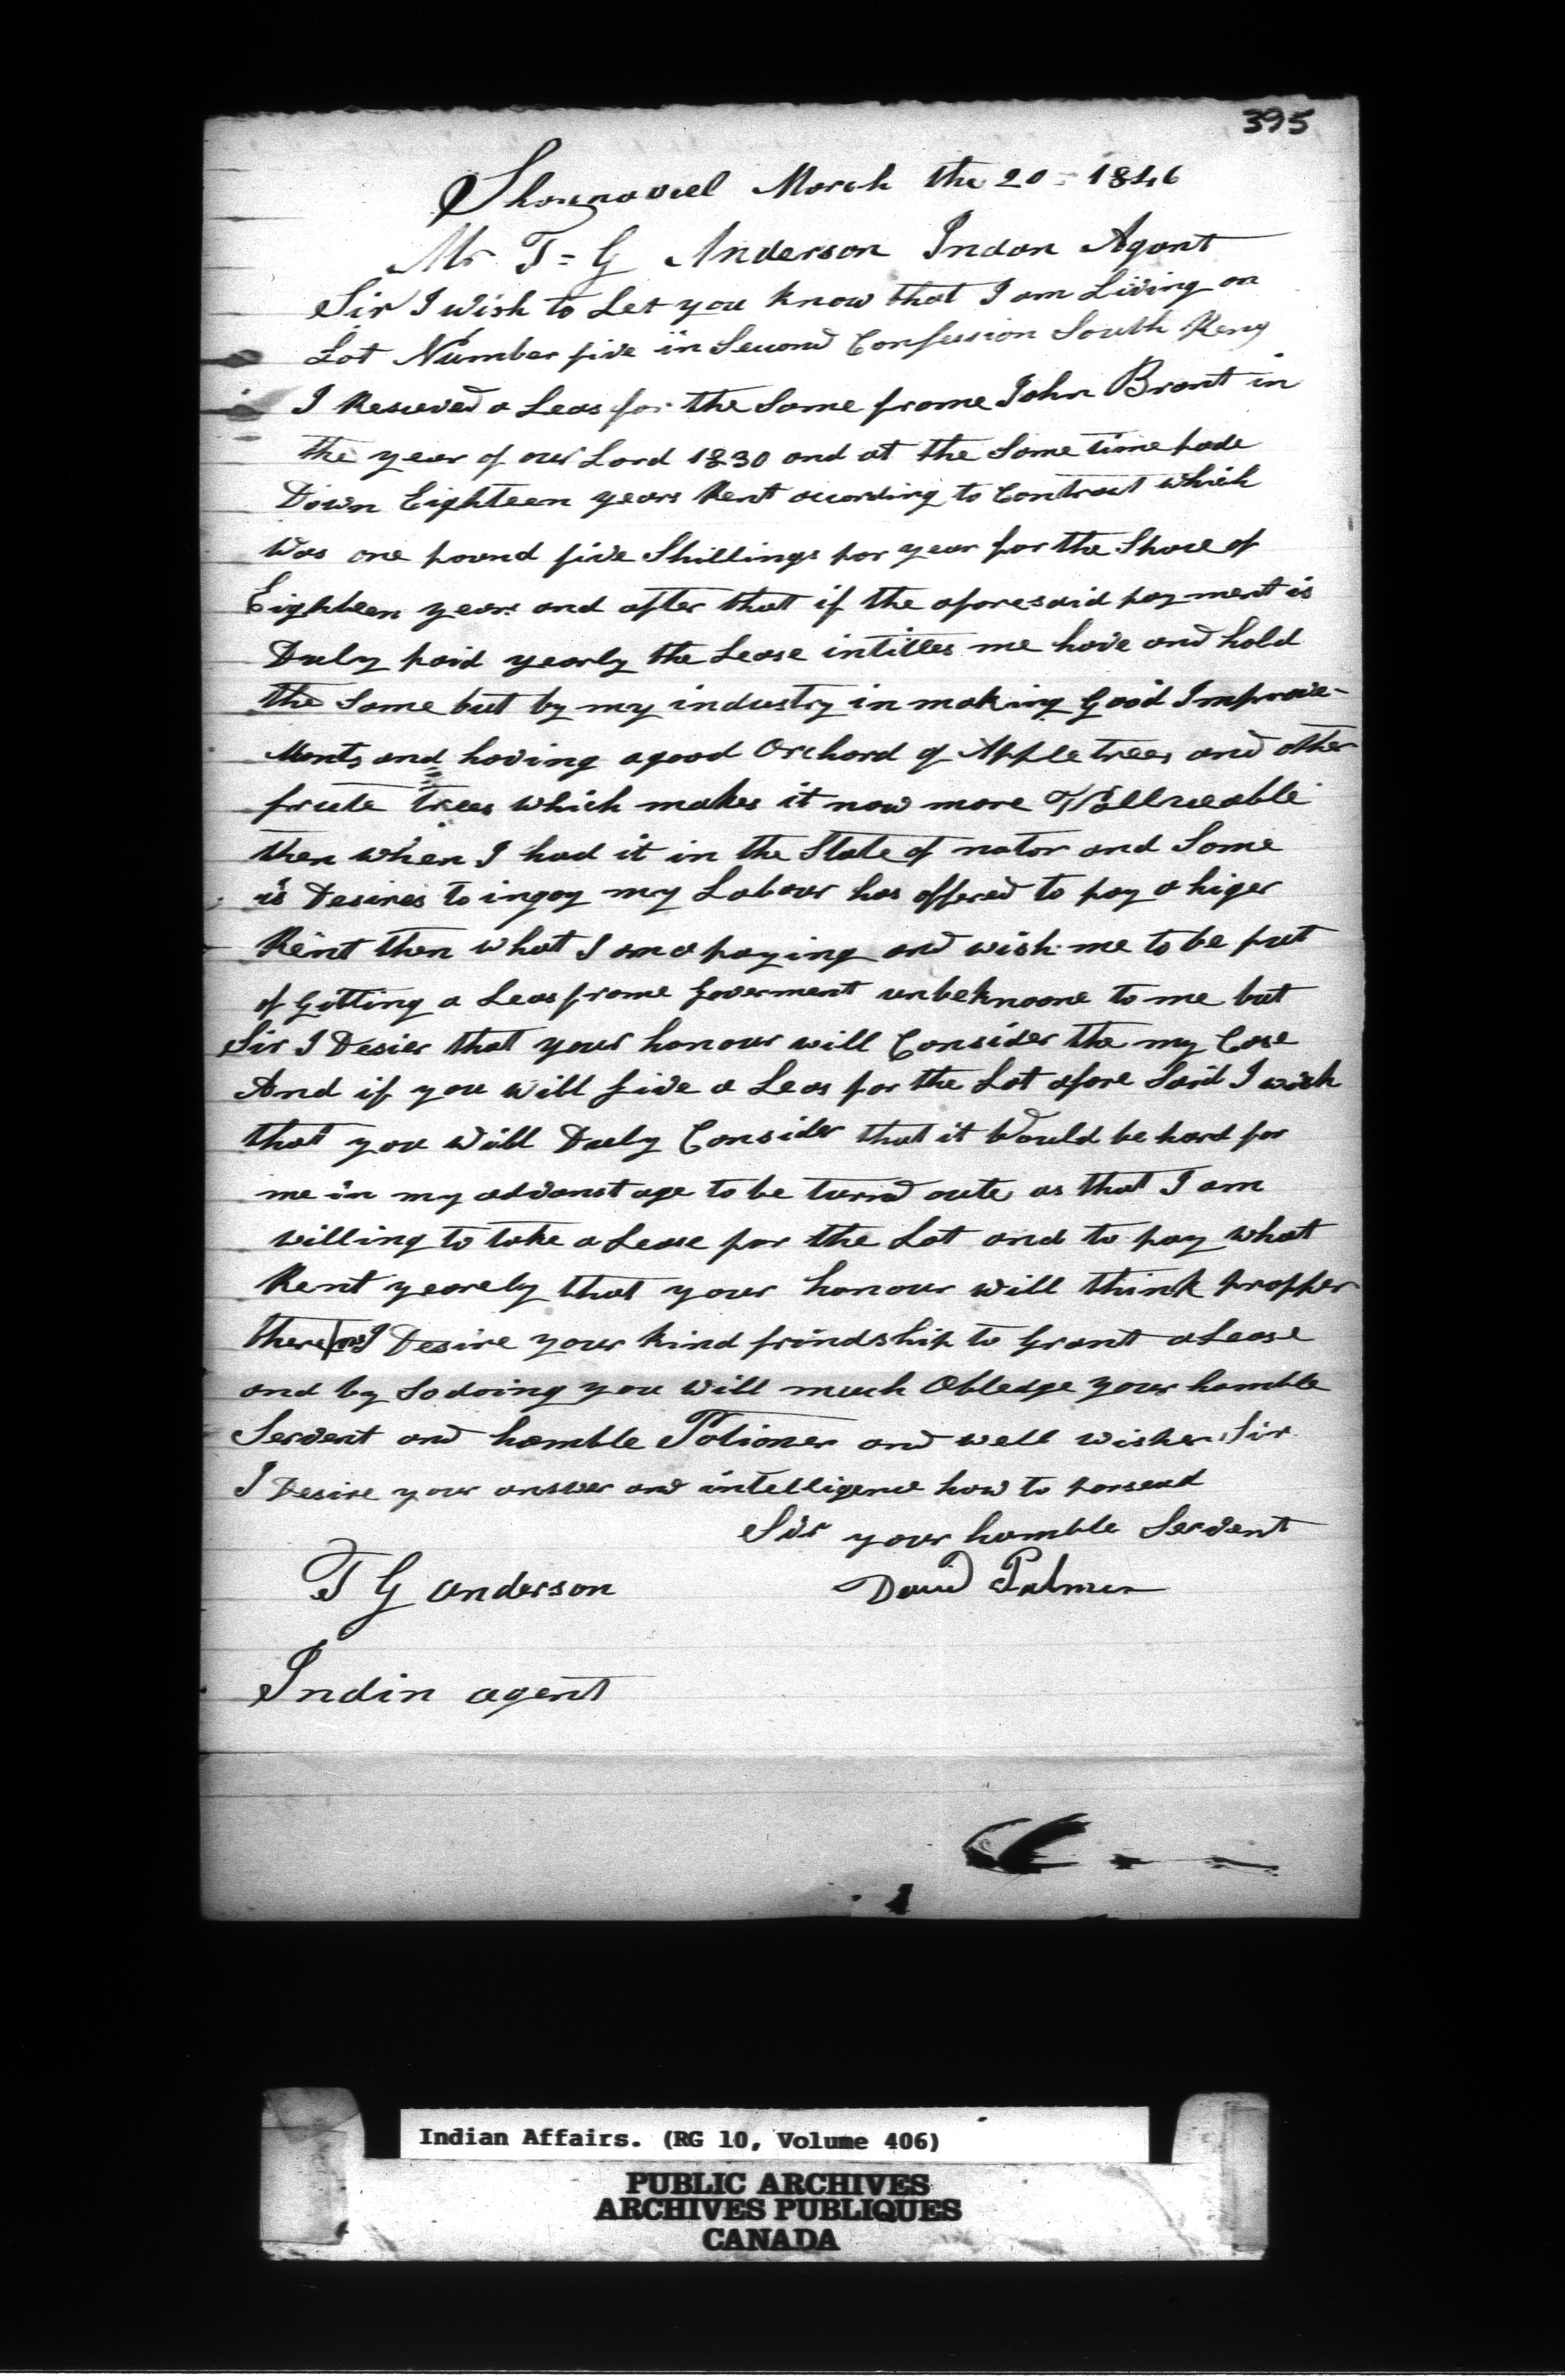 395
March the 20 = 1846
Mr T = G Anderson Indan Agant
Sir I wish to Let you know that I am Living on
Lot Number five in Second Consession South
I Reseved a Leas for the Same frome John Brant in
the year of our Lord 1830 and at the Same time pade
Down Eighteen years Rent acording to Contract which
was one pound five Shillings par year for the Space of
Eighteen years and after that if the aforesaid payment is
Duly paid yearly the Lease intitles me have and hold
the Same but by my industry in making Good Improve-
Ments and having a good Orchard of Apple trees and other
frute trees which makes it now more Vallueable
then when I had it in the State of nator and Some
is Desires to ingoy my Labour has offered to pay a higer
Rent then what I am a paying and wish me to be put
of Gitting a Leas frome Goverment unbeknoone to me but
Sir I Desier that your honour will Consider the my Case
And if you will give a Leas for the Lot afore Said I wish
that you will Duly Consider that it Would be hard for
me in my advanst age to be turnd oute as that I am
willing to take a Lease for the Lot and to pay what
Rent yearely that your honour will think propper
therefore I Desire your kind frindship to Grant a Lease
and by So doing you will much Obledge your homble
Servent and homble and well wisher Sir
I Desire your answer and intelligence how to
Sir your humble Servent
T G anderson David Palmer
Indin agent
Indian Affairs. (RG 10, Volume 406)
PUBLIC ARCHIVES
ARCHIVES PUBLIQUES
CANADA